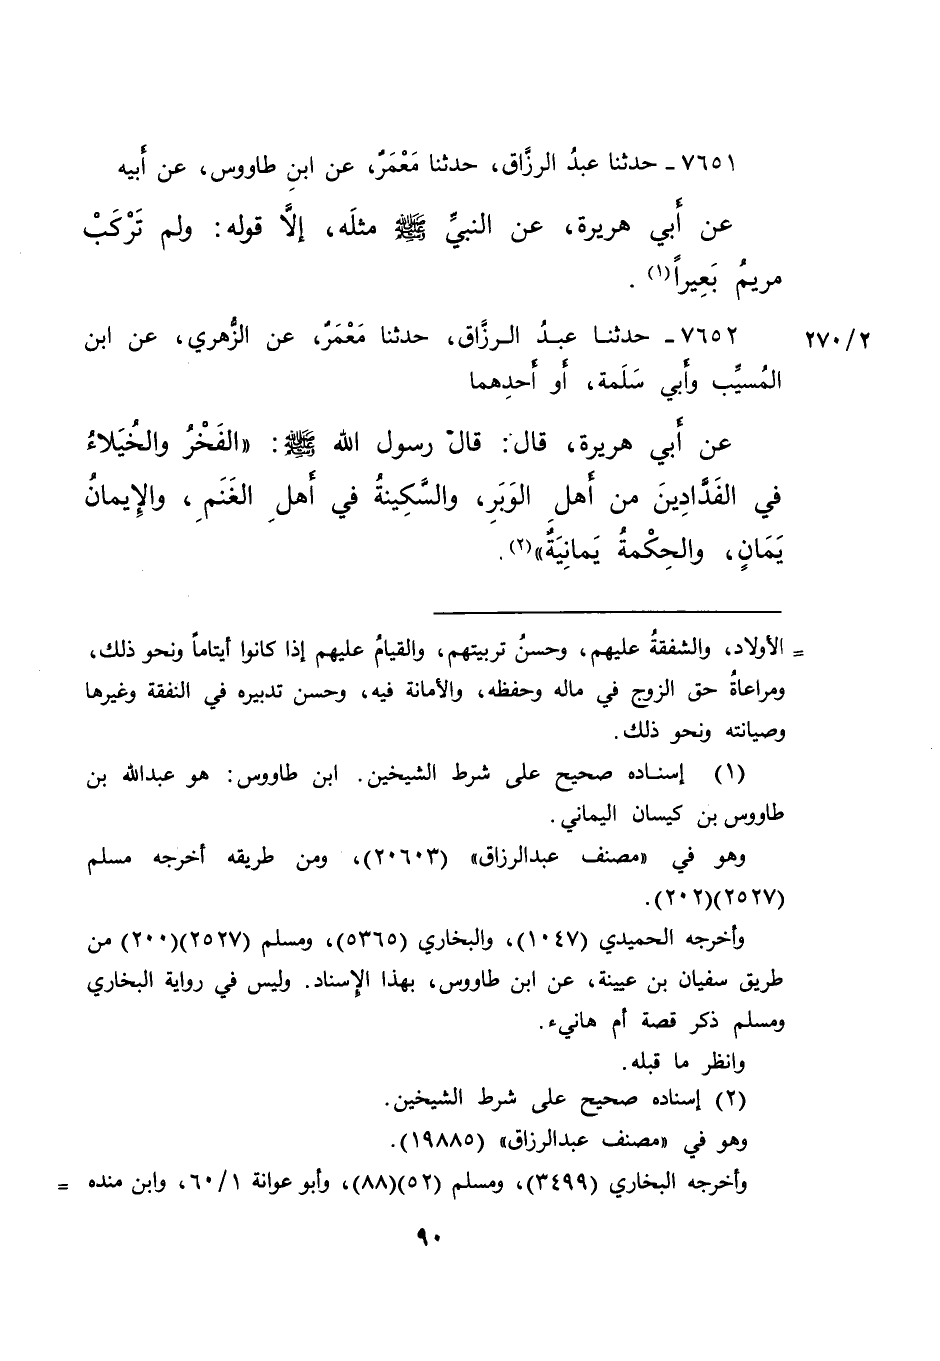 ٧٦٥١ـ حدثنا عبدُ الرزَّاق، حدثنا مَعْمَرٌ، عن ابنِ طاووس، عن أَبيه
عن أَبي هريرة، عن النبيِّ ﷺ مثلَه، إلَّا قوله: ولم تَرْكَبْ
مريمُ بَعِيراً(١) .
٢٧٠/٢
٧٦٥٢ـ حدثنا عبدُ الرزَّاق، حدثنا مَعْمَرٌ، عن الزُّهري، عن ابن
المُسيِّب وأَبي سَلَمة، أَو أَحدِهما
عن أَبي هريرة، قال: قال رسول الله ﷺ: «الفَخْرُ والخُيَلاءُ
في الفَدَّادِينَ من أَهلِ الوَبَرِ، والسَّكِينةُ في أَهلِ الغَنَمِ، والإِيمانُ
يَمَانٍ، والحِكْمةُ يَمانِيَةٌ»(٢).
= الأولاد، والشفقةُ عليهم، وحسنُ تربيتهم، والقيامُ عليهم إذا كانوا أيتاماً ونحو ذلك،
ومراعاةُ حق الزوج في ماله وحفظه، والأمانة فيه، وحسن تدبيره في النفقة وغيرها
وصيانته ونحو ذلك.
(١) إسناده صحيح على شرط الشيخين. ابن طاووس: هو عبدالله بن
طاووس بن كيسان اليماني.
وهو في «مصنف عبدالرزاق» (٢٠٦٠٣)، ومن طريقه أخرجه مسلم
(٢٥٢٧)(٢٠٢).
وأخرجه الحميدي (١٠٤٧)، والبخاري (٥٣٦٥)، ومسلم (٢٥٢٧)(٢٠٠) من
طريق سفيان بن عيينة، عن ابن طاووس، بهذا الإسناد. وليس في رواية البخاري
ومسلم ذكر قصة أم هانيء.
وانظر ما قبله.
(٢) إسناده صحيح على شرط الشيخين.
وهو في «مصنف عبدالرزاق» (١٩٨٨٥).
وأخرجه البخاري (٣٤٩٩)، ومسلم (٥٢)(٨٨)، وأبو عوانة ٦٠/١، وابن منده =
٩٠